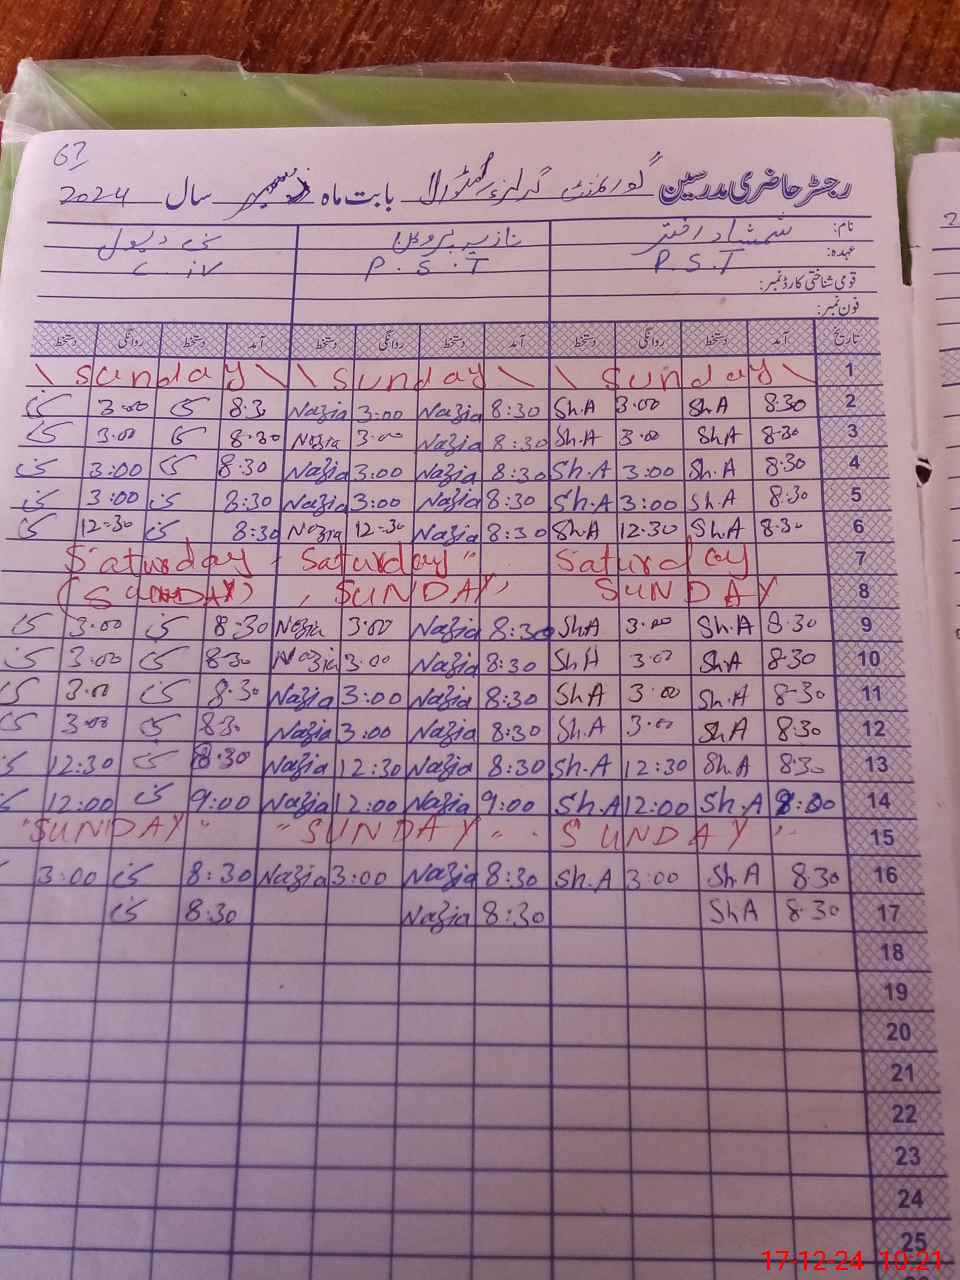 67
رجسٹر حاضری مدرسین گورنمنٹ گرلز بابت ماہ دسمبر سال 2024
نام: شمشاد اختر نازیہ پروین
عہدہ: P.S.T P.S.T C.iv
قومی شناختی کارڈ نمبر:
فون نمبر:
تاریخ آمد دستخط روانگی دستخط آمد دستخط روانگی دستخط آمد دستخط روانگی دستخط
1 \ Sunday \ \ Sunday \ \ Sunday \
2 8:30 Sh.A 3:00 Sh.A 8:30 Nazia 3:00 Nazia 8:3 3:00
3 8:30 Sh.A 3:00 Sh.A 8:30 Nazia 3:00 Nazia 8:30 3:00
4 8:30 Sh.A 3:00 Sh.A 8:30 Nazia 3:00 Nazia 8:30 3:00
5 8:30 Sh.A 3:00 Sh.A 8:30 Nazia 3:00 Nazia 8:30 3:00
6 8:30 Sh.A 12:30 Sh.A 8:30 Nazia 12:30 Nazia 8:30 12:30
7 Saturday Saturday Saturday
8 SUNDAY SUNDAY (SUNDAY)
9 8:30 Sh.A 3:00 Sh.A 8:30 Nazia 3:00 Nazia 8:30 3:00
10 8:30 Sh.A 3:00 Sh.A 8:30 Nazia 3:00 Nazia 8:30 3:00
11 8:30 Sh.A 3:00 Sh.A 8:30 Nazia 3:00 Nazia 8:30 3:00
12 8:30 Sh.A 3:00 Sh.A 8:30 Nazia 3:00 Nazia 8:30 3:00
13 8:30 Sh.A 12:30 Sh.A 8:30 Nazia 12:30 Nazia 8:30 12:30
14 Sh.A 12:00 Sh.A 9:00 Nazia 12:00 Nazia 9:00 12:00
15 "SUNDAY" "SUNDAY" "SUNDAY"
16 8:30 Sh.A 3:00 Sh.A 8:30 Nazia 3:00 Nazia 8:30 3:00
17 8:30 Sh.A 8:30 Nazia 8:30
18
19
20
21
22
23
24
25
17-12-24 10:21